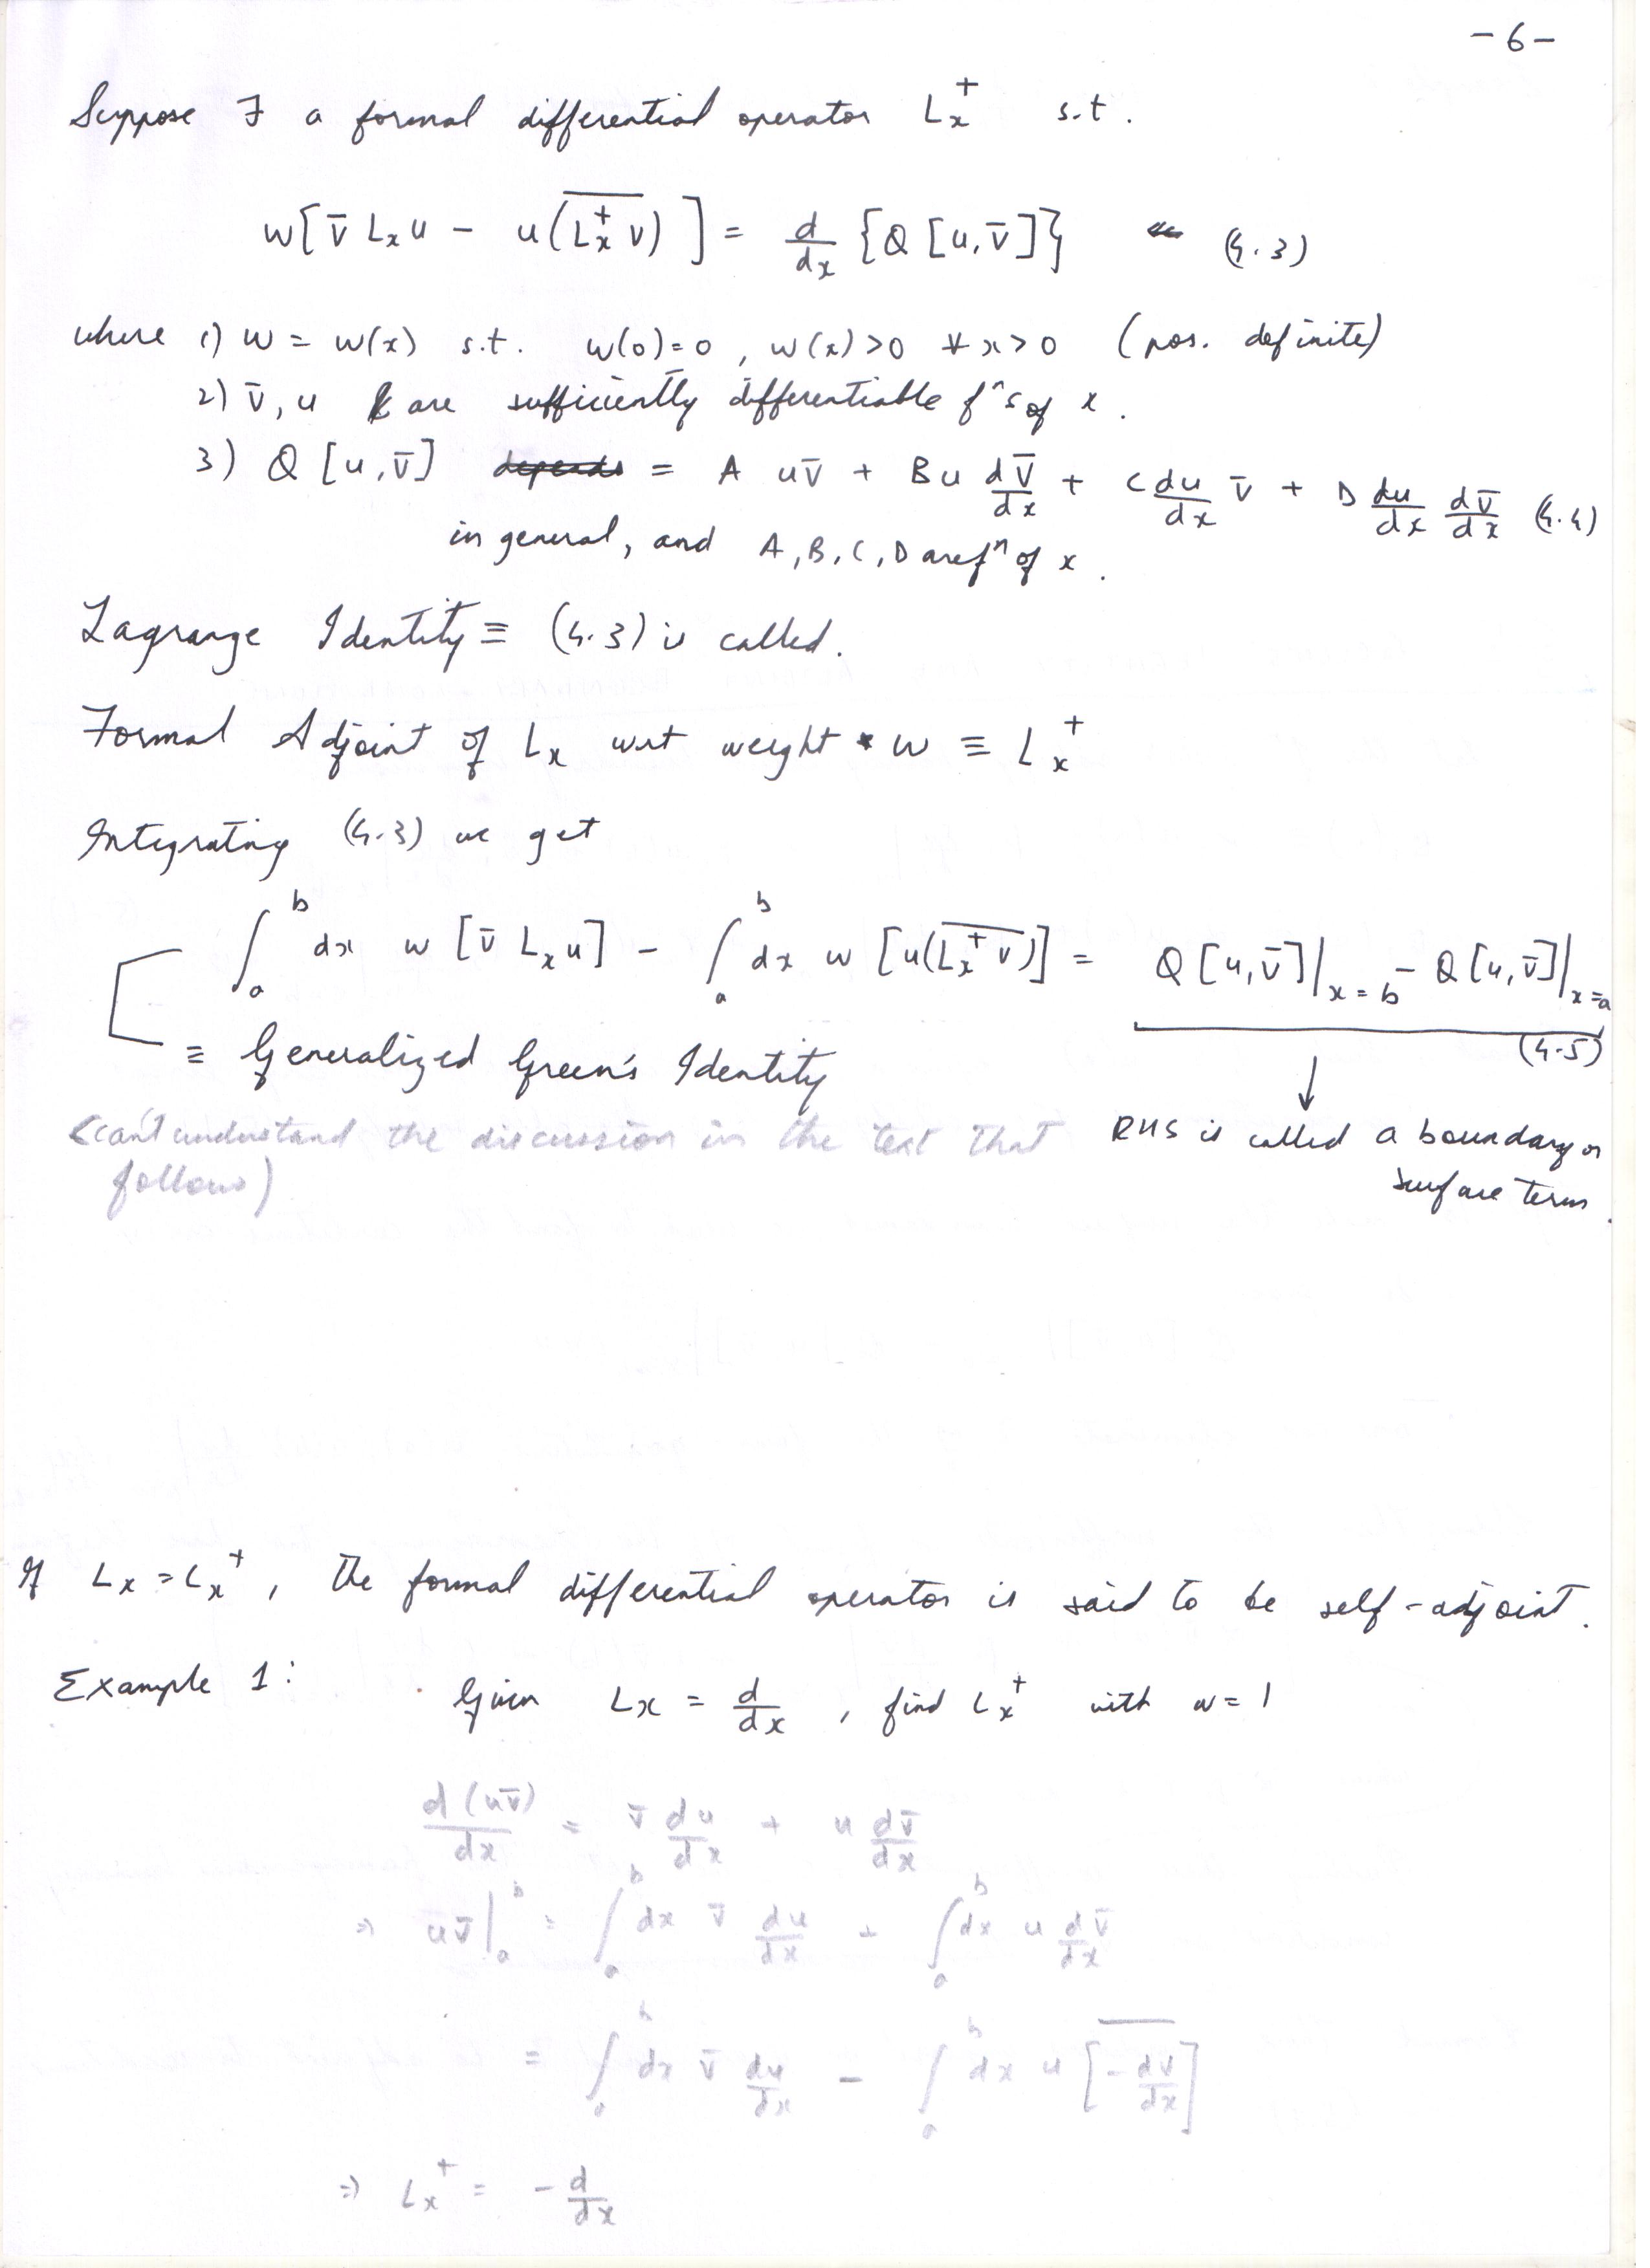 - 6 -
Suppose ∃ a formal differential operator L_x^+ s.t.
w[v̄ L_x u - u(\overline{L_x^+ v})] = d/dx {Q[u, v̄]} (4.3)
where 1) w = w(x) s.t. w(0)=0, w(x)>0 ∀ x>0 (pos. definite)
2) v̄, u are sufficiently differentiable fⁿs of x.
3) Q[u, v̄] ~~depends~~ = A u v̄ + B u dv̄/dx + C du/dx v̄ + D du/dx dv̄/dx (4.4)
in general, and A, B, C, D are fⁿ of x.
Lagrange Identity ≡ (4.3) is called.
Formal Adjoint of L_x wrt weight w ≡ L_x^+
Integrating (4.3) we get
∫_a^b dx w [v̄ L_x u] - ∫_a^b dx w [u(\overline{L_x^+ v})] = Q[u, v̄]|_{x=b} - Q[u, v̄]|_{x=a}
(4.5)
≡ Generalized Green's Identity
(can't understand the discussion in the text that
follows)
↓
RHS is called a boundary or
surface term.
If L_x = L_x^+, the formal differential operator is said to be self-adjoint.
Example 1: Given L_x = d/dx, find L_x^+ with w = 1
d(uv̄)/dx = v̄ du/dx + u dv̄/dx
⇒ uv̄|_a^b = ∫_a^b dx v̄ du/dx + ∫_a^b dx u dv̄/dx
= ∫_a^b dx v̄ du/dx - ∫_a^b dx u [\overline{-dv/dx}]
⇒ L_x^+ = -d/dx